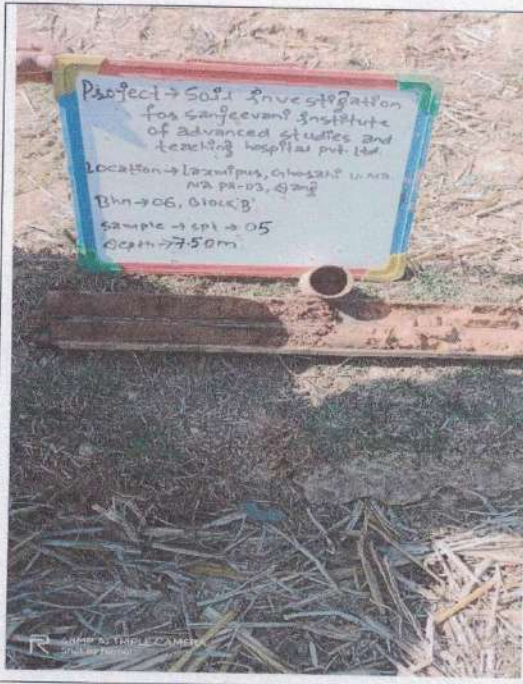 Project → Soil Investigation
for sanjeevani Institute
of advanced studies and
teaching hospital pvt. Ltd.
Location → Laxmipur, Ghorahi U.Ma.
Na Pa-03, Dang
Bhn → 06, Block 'B'
sample → spt → 05
depth → 7.50m
R
TRIPLE CAMERA
Shot by